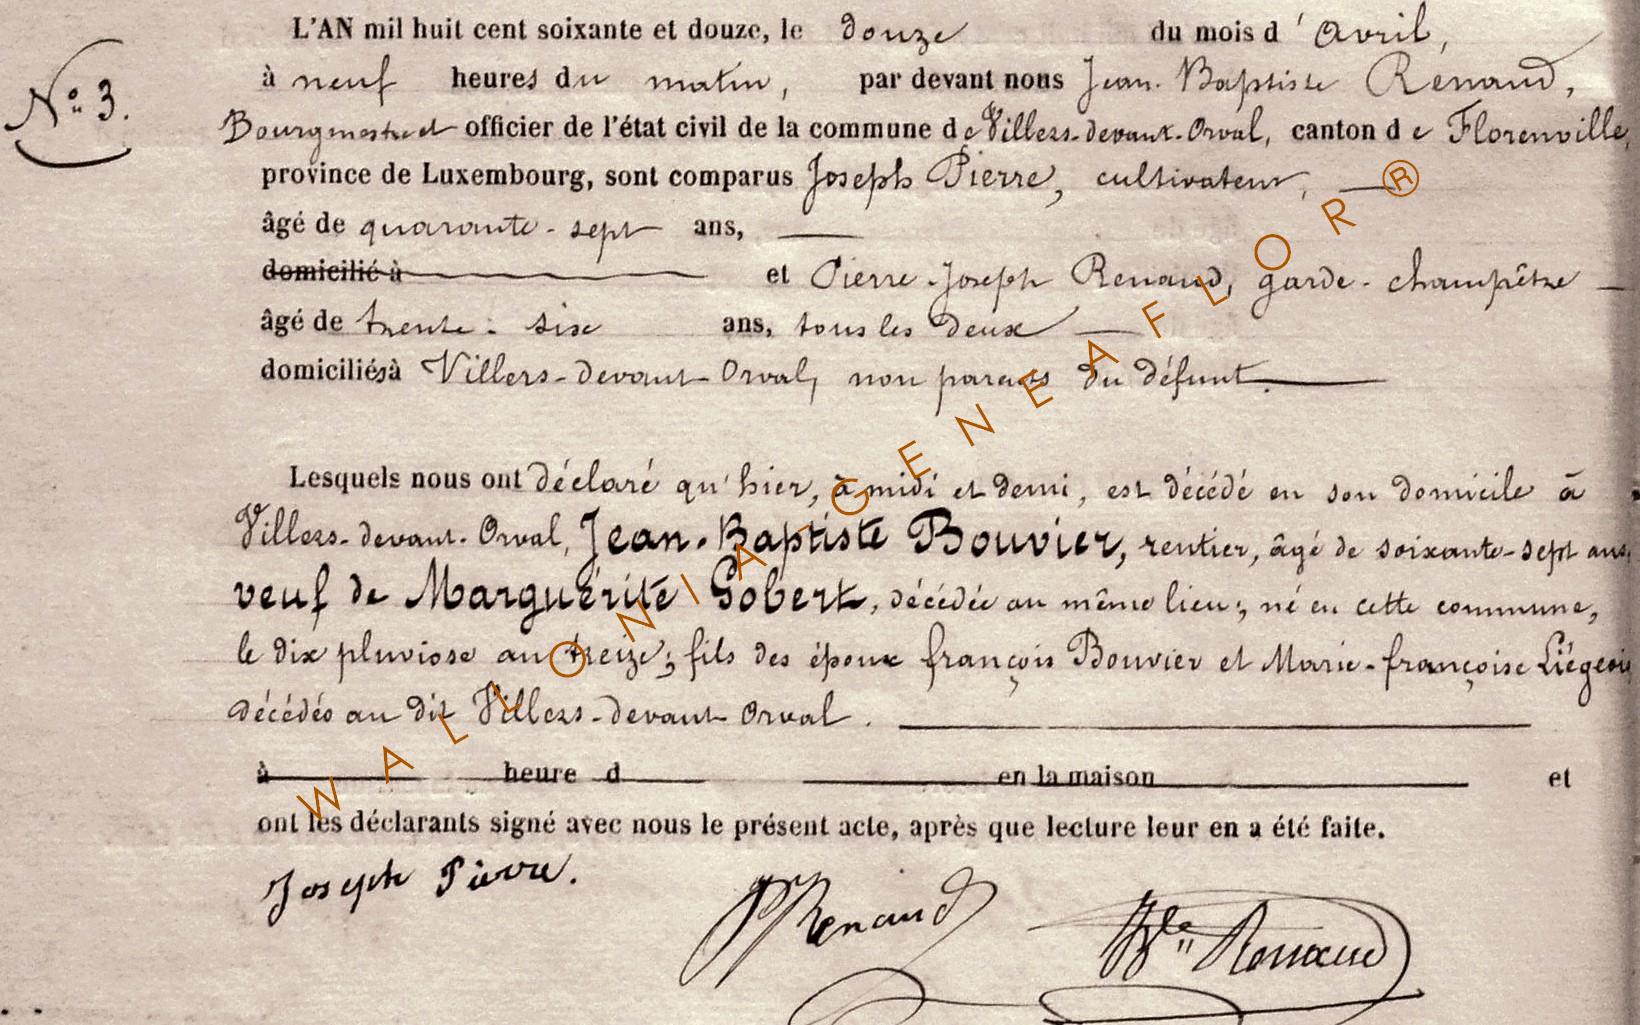 L'AN mil huit cent soixante et douze, le douze du mois d'Avril,
à neuf heures du matin, par devant nous Jean-Baptiste Renaud,
N° 3.
Bourgmestre et officier de l'état civil de la commune de Villers-devant-Orval, canton de Florenville,
province de Luxembourg, sont comparus Joseph Pierre, cultivateur,
âgé de quarante-sept ans,
domicilié à et Pierre-Joseph Renaud, garde-champêtre
âgé de trente-six ans, tous les deux
domiciliés à Villers-devant-Orval, non parents du défunt.
Lesquels nous ont déclaré qu'hier, à midi et demi, est décédé en son domicile à
Villers-devant-Orval, Jean-Baptiste Bouvier, rentier, âgé de soixante-sept ans,
veuf de Marguérite Gobert, décédée au même lieu; né en cette commune,
le dix pluviose an treize; fils des époux françois Bouvier et Marie-françoise Liégeois
décédés au dit Villers-devant-Orval.
à heure d en la maison et
ont les déclarants signé avec nous le présent acte, après que lecture leur en a été faite.
Joseph Pierre.
PJRenaud
Bte Renaud
WALLONIA-GENEAFLOR®